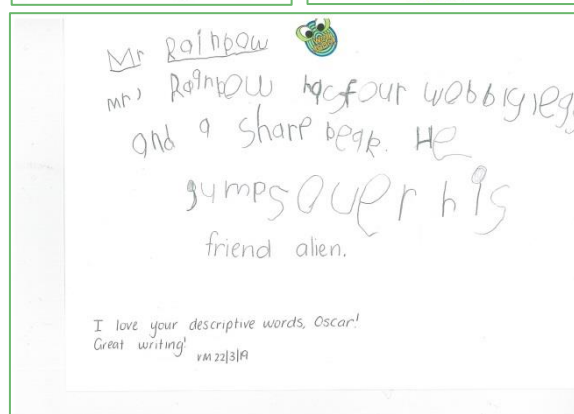 Mr Rainbow
mr' Rainbow has four wobbly legs
and a sharp beak. He
gumps over his
friend alien.
I love your descriptive words, Oscar!
Great writing!
VM 22/3/19